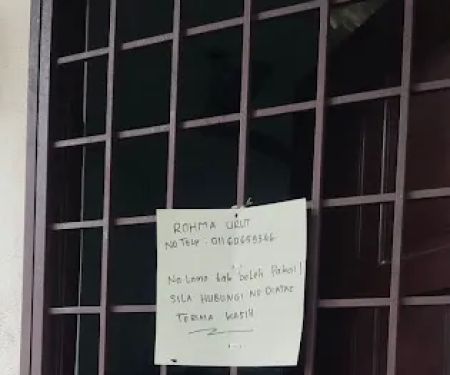 ROHMA URUT
NO TELP : 01160658366
No lama tak boleh Pakai !
SILA HUBUNGI NO DIATAS
TERIMA KASIH